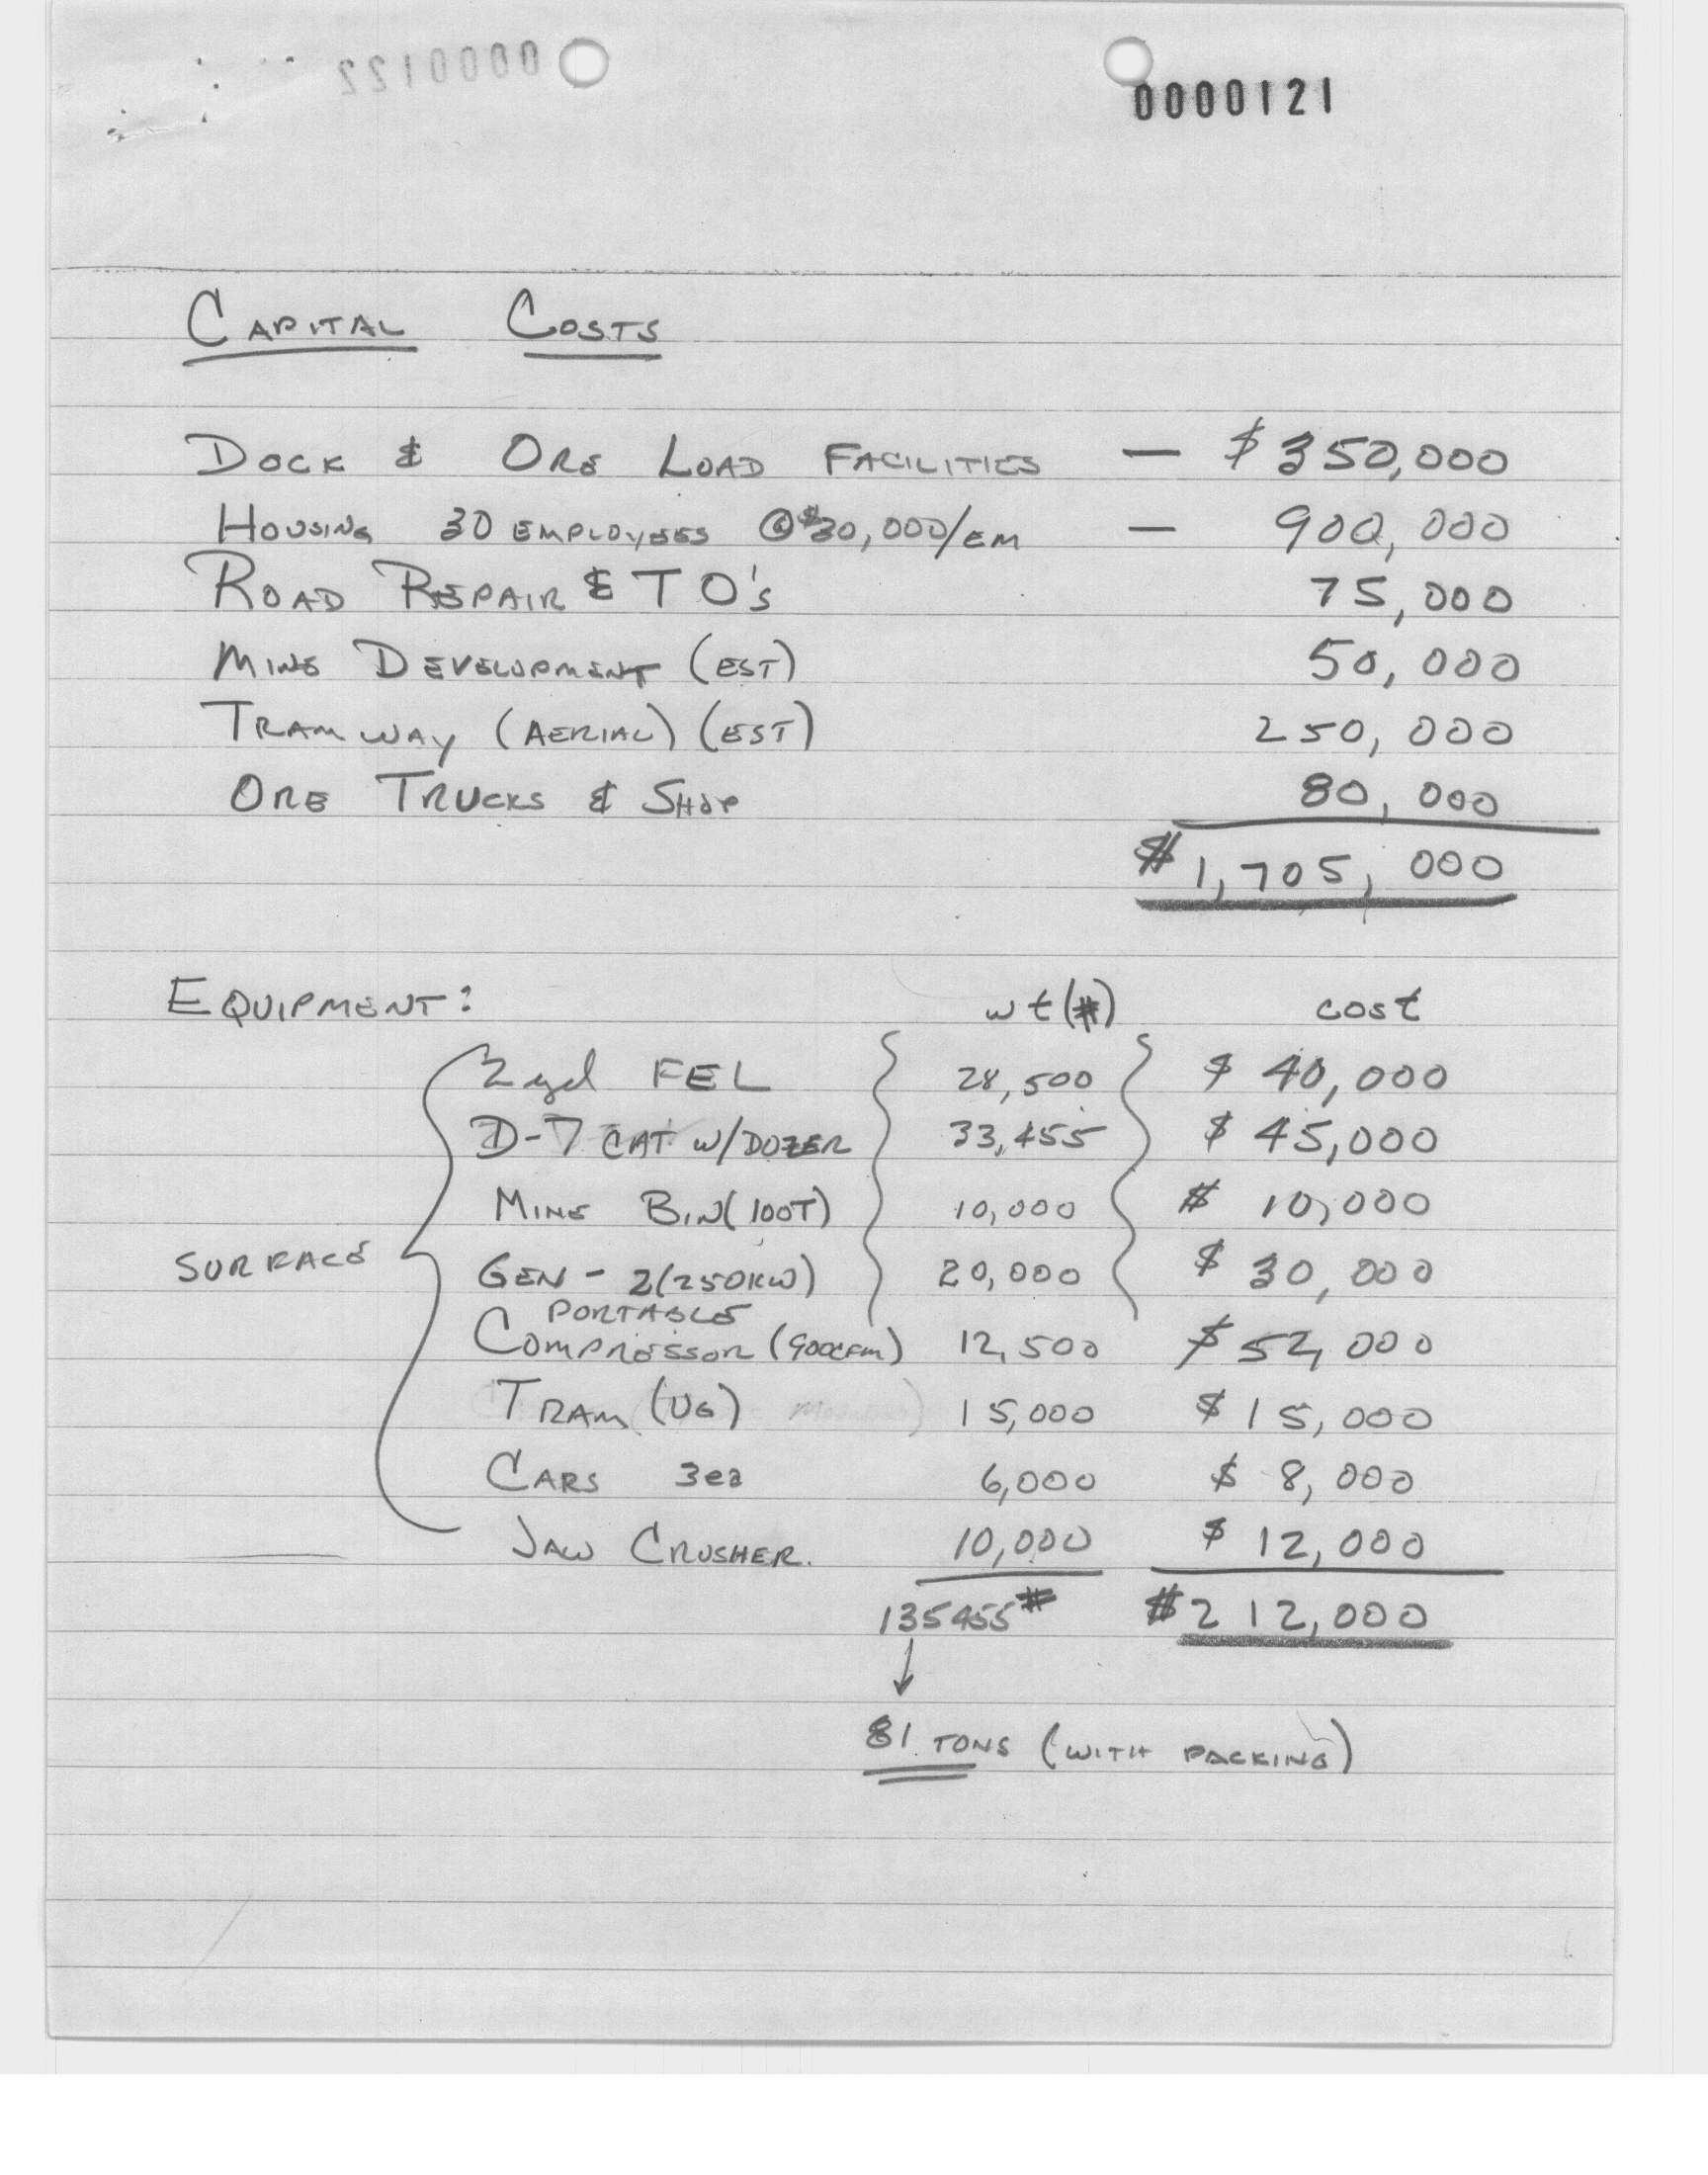 0000122
0000121
CAPITAL COSTS
DOCK & ORE LOAD FACILITIES — $350,000
HOUSING 30 EMPLOYEES @ $30,000/EM — 900,000
ROAD REPAIR & TO's 75,000
MINE DEVELOPMENT (EST) 50,000
TRAMWAY (AERIAL) (EST) 250,000
ORE TRUCKS & SHOP 80,000
$1,705,000
EQUIPMENT: wt(#) cost
2yd FEL 28,500 $ 40,000
D-7 CAT W/DOZER 33,455 $ 45,000
MINE BIN (100T) 10,000 $ 10,000
SURFACE GEN - 2(250KW) 20,000 $ 30,000
PORTABLE
COMPRESSOR (900CFM) 12,500 $ 52,000
TRAM (UG) 15,000 $ 15,000
CARS 3ea 6,000 $ 8,000
JAW CRUSHER. 10,000 $ 12,000
135455# $212,000
81 TONS (WITH PACKING)